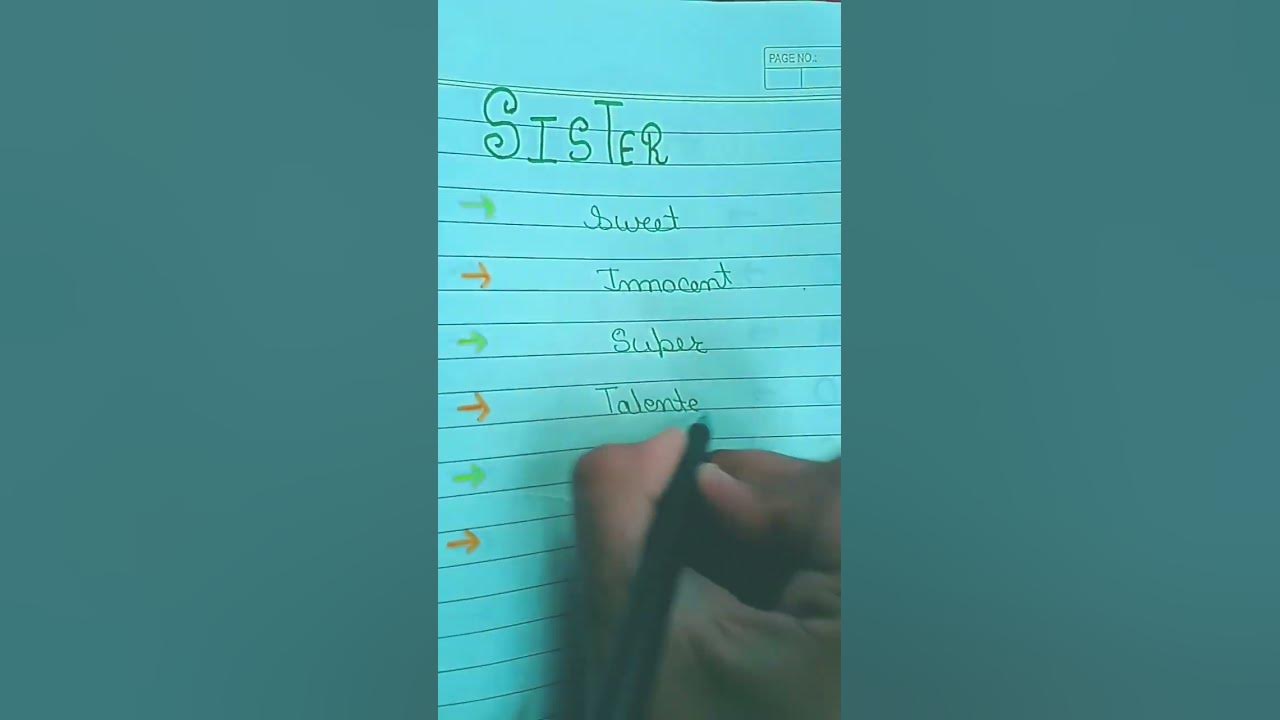 PAGE NO.:
SISTER
Sweet
Innocent
Super
Talente